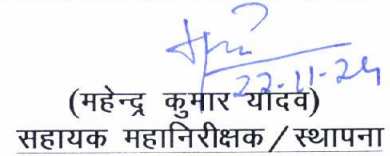 22-11-24
(महेन्द्र कुमार यादव)
सहायक महानिरीक्षक / स्थापना